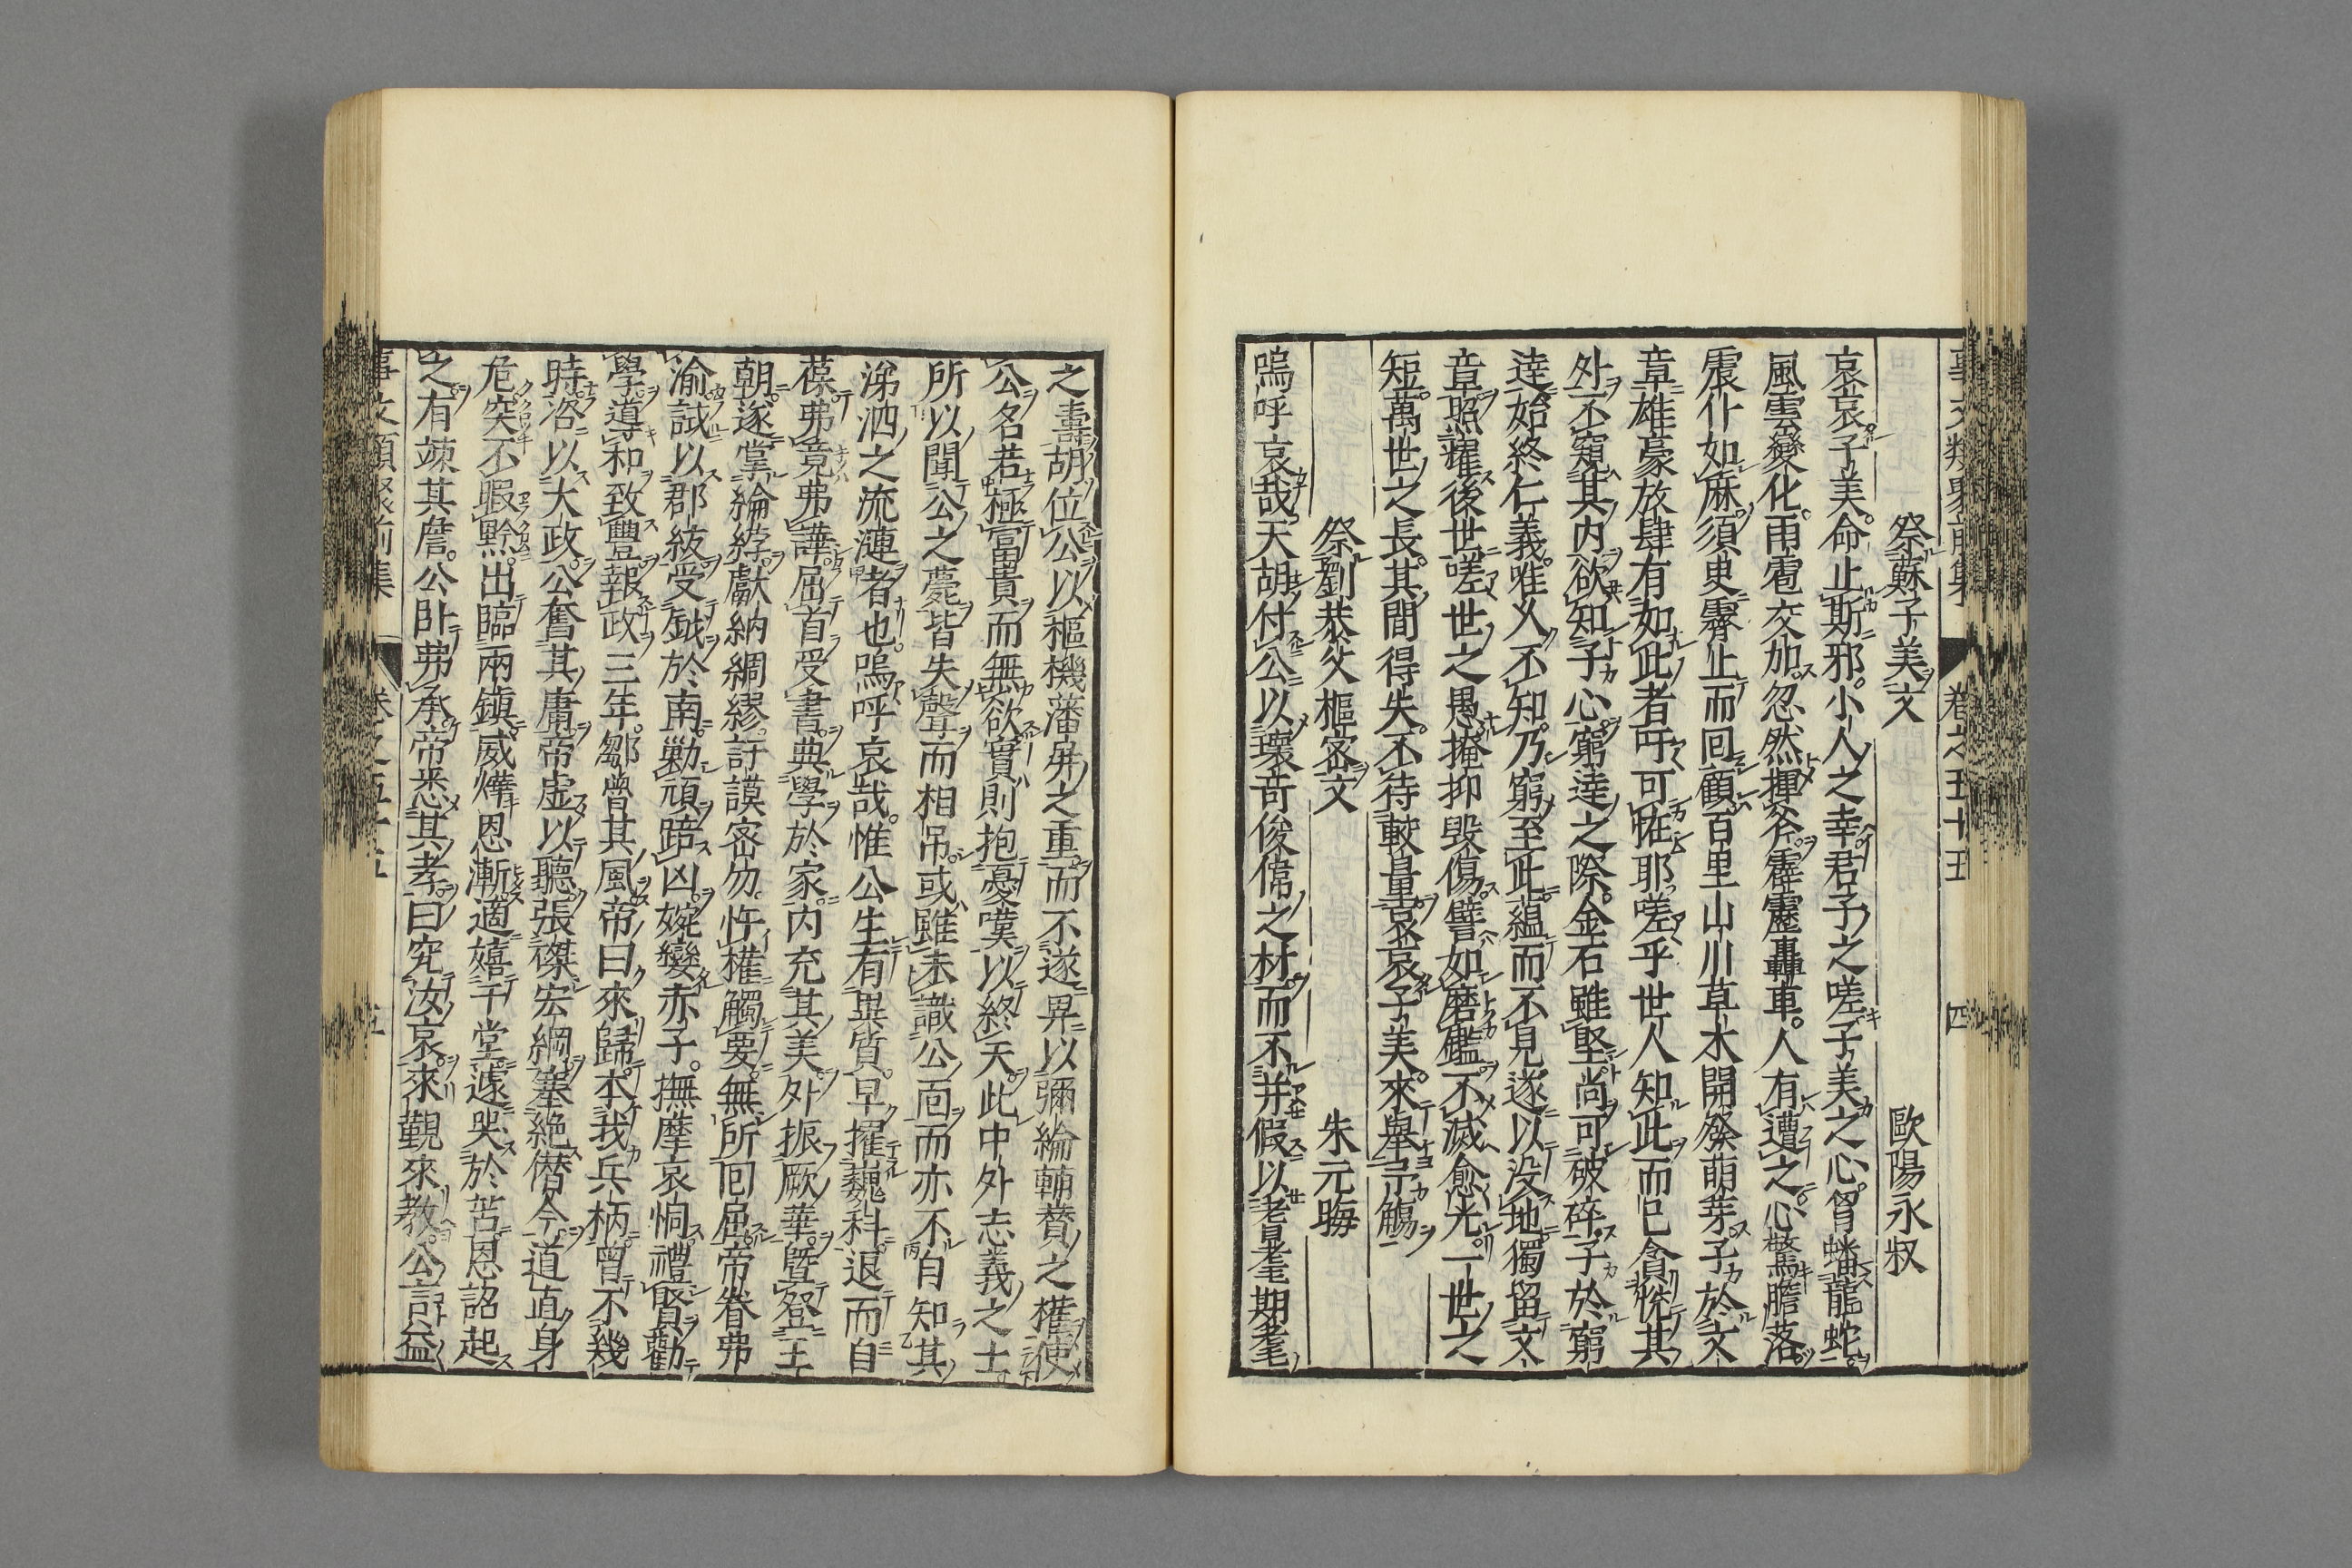 事文類聚前集 卷之五十五 四
祭蘇子美文 歐陽永叔
哀哀子美命止斯邪小人之幸君子之嗟子美之心胷蟠龍蛇
風雲變化雨雹交加忽然揮斧霹靂轟車人有遭之心驚膽落
震仆如麻須臾霽止而回顧百里山川草木開發萌芽子於文
章雄豪放肆有如此者吁可恠耶嗟乎世人知此而已貪恱其
外不窺其内欲知子心窮逹之際金石雖堅尚可破碎子於窮
逹始終仁義唯人不知乃窮至此蘊而不見遂以没地獨留文
章照耀後世嗟世之愚掩抑毀傷譬如磨鑑不滅愈光一世之
短萬世之長其間得失不待較量哀哀子美來舉予觴
祭劉恭父樞宻文 朱元晦
嗚呼哀哉天胡付公以瓌竒俊偉之材而不并假以耆耋期耄
之壽胡位公以樞機藩屏之重而不遂畀以彌綸輔賛之權使
公名若極富貴而無欲實則抱憂嘆以終天此中外志義之士
所以聞公之薨皆失聲而相吊或雖未識公面而亦不自知其
涕泗之流漣者也嗚呼哀哉惟公生有異質早擢巍科退而自
葆弗竟弗譁屈首受書典學於家内充其美外振厥華曁登王
朝遂掌綸綍獻納綢繆訏謨宻勿忤權觸要無所囘屈帝眷弗
渝試以郡紱受鉞於南勦頑踣凶婉孌赤子撫摩哀恫禮賢勸
學導和致豐報政三年鄒魯其風帝曰來歸本我兵柄曾不幾
時咨以大政公奮其庸帝虚以聽張磔宏綱塞絶僭令道直身
危突不暇黔出臨兩鎮威燁恩漸適嬉于堂遽哭於苫恩詔起
之有竦其詹公卧弗承帝悉其孝曰究汝哀來觀來教公言益
事文類聚前集 卷之五十五 五